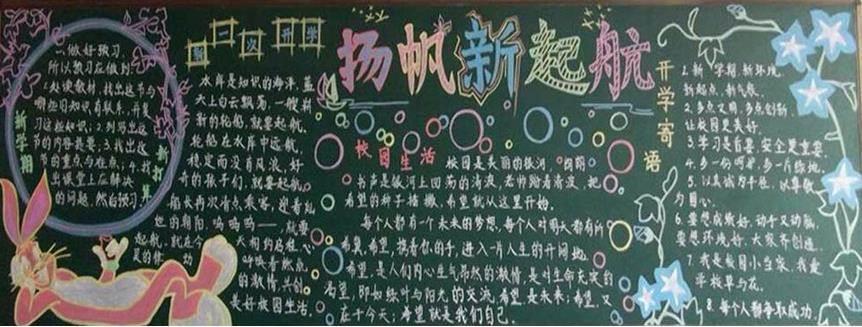 扬帆新起航
新学期
新打算
一、做好预习.
所以预习应做到:
1.处读教材,找出这节与
哪些旧知识有联系,并复
习这些知识;2.列写出这
节的内容提要;3.找出这
节的重点与难点;4.找
出课堂上应解决
的问题.然后预习
第一次开学
水库是知识的海洋.蓝
天上白云飘荡,一艘崭
新的轮船,就要起航.
轮船在水库中远航
稳定而没有风浪.好
奇的孩子们,就要起航,
船长再次清点乘客,迎着灿
烂的朝阳.呜呜呜——,就要
起航.就在今天
的激情,共创
美好校园生活.
校园生活
校园是美丽的银河
书声是银河上回荡的清波,老师踏着清波,把
希望的种子播撒.希望就从这里开始.
每个人都有一个未来的梦想,每个人对明天都有所
希冀.希望,携着你的手,进入一片人生的开阔地.
希望,是人们内心生气昂然的激情,是对生命充实的
渴望,即如绿叶与阳光的交流.希望是未来;希望,又
在于今天;希望就是我们自己.
开学寄语
1.新学期.新环境.
新起点.新气象.
2.多点文明,多点创新.
让校园更美好.
3.学习是首要,安全更重要.
4.多一份呵护,多一片绿地.
5.以真诚为半径,以尊敬
为圆心.
6.要想成绩好,动手又动脑,
要想环境好,大家齐创造.
7.我是校园小当家,我爱
学校草与花.
8.每个人都争取成功.